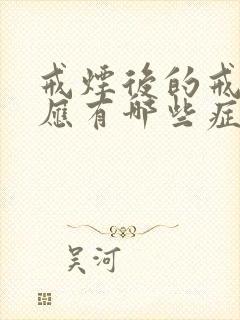 戒煙後的戒
應有哪些症
吴河